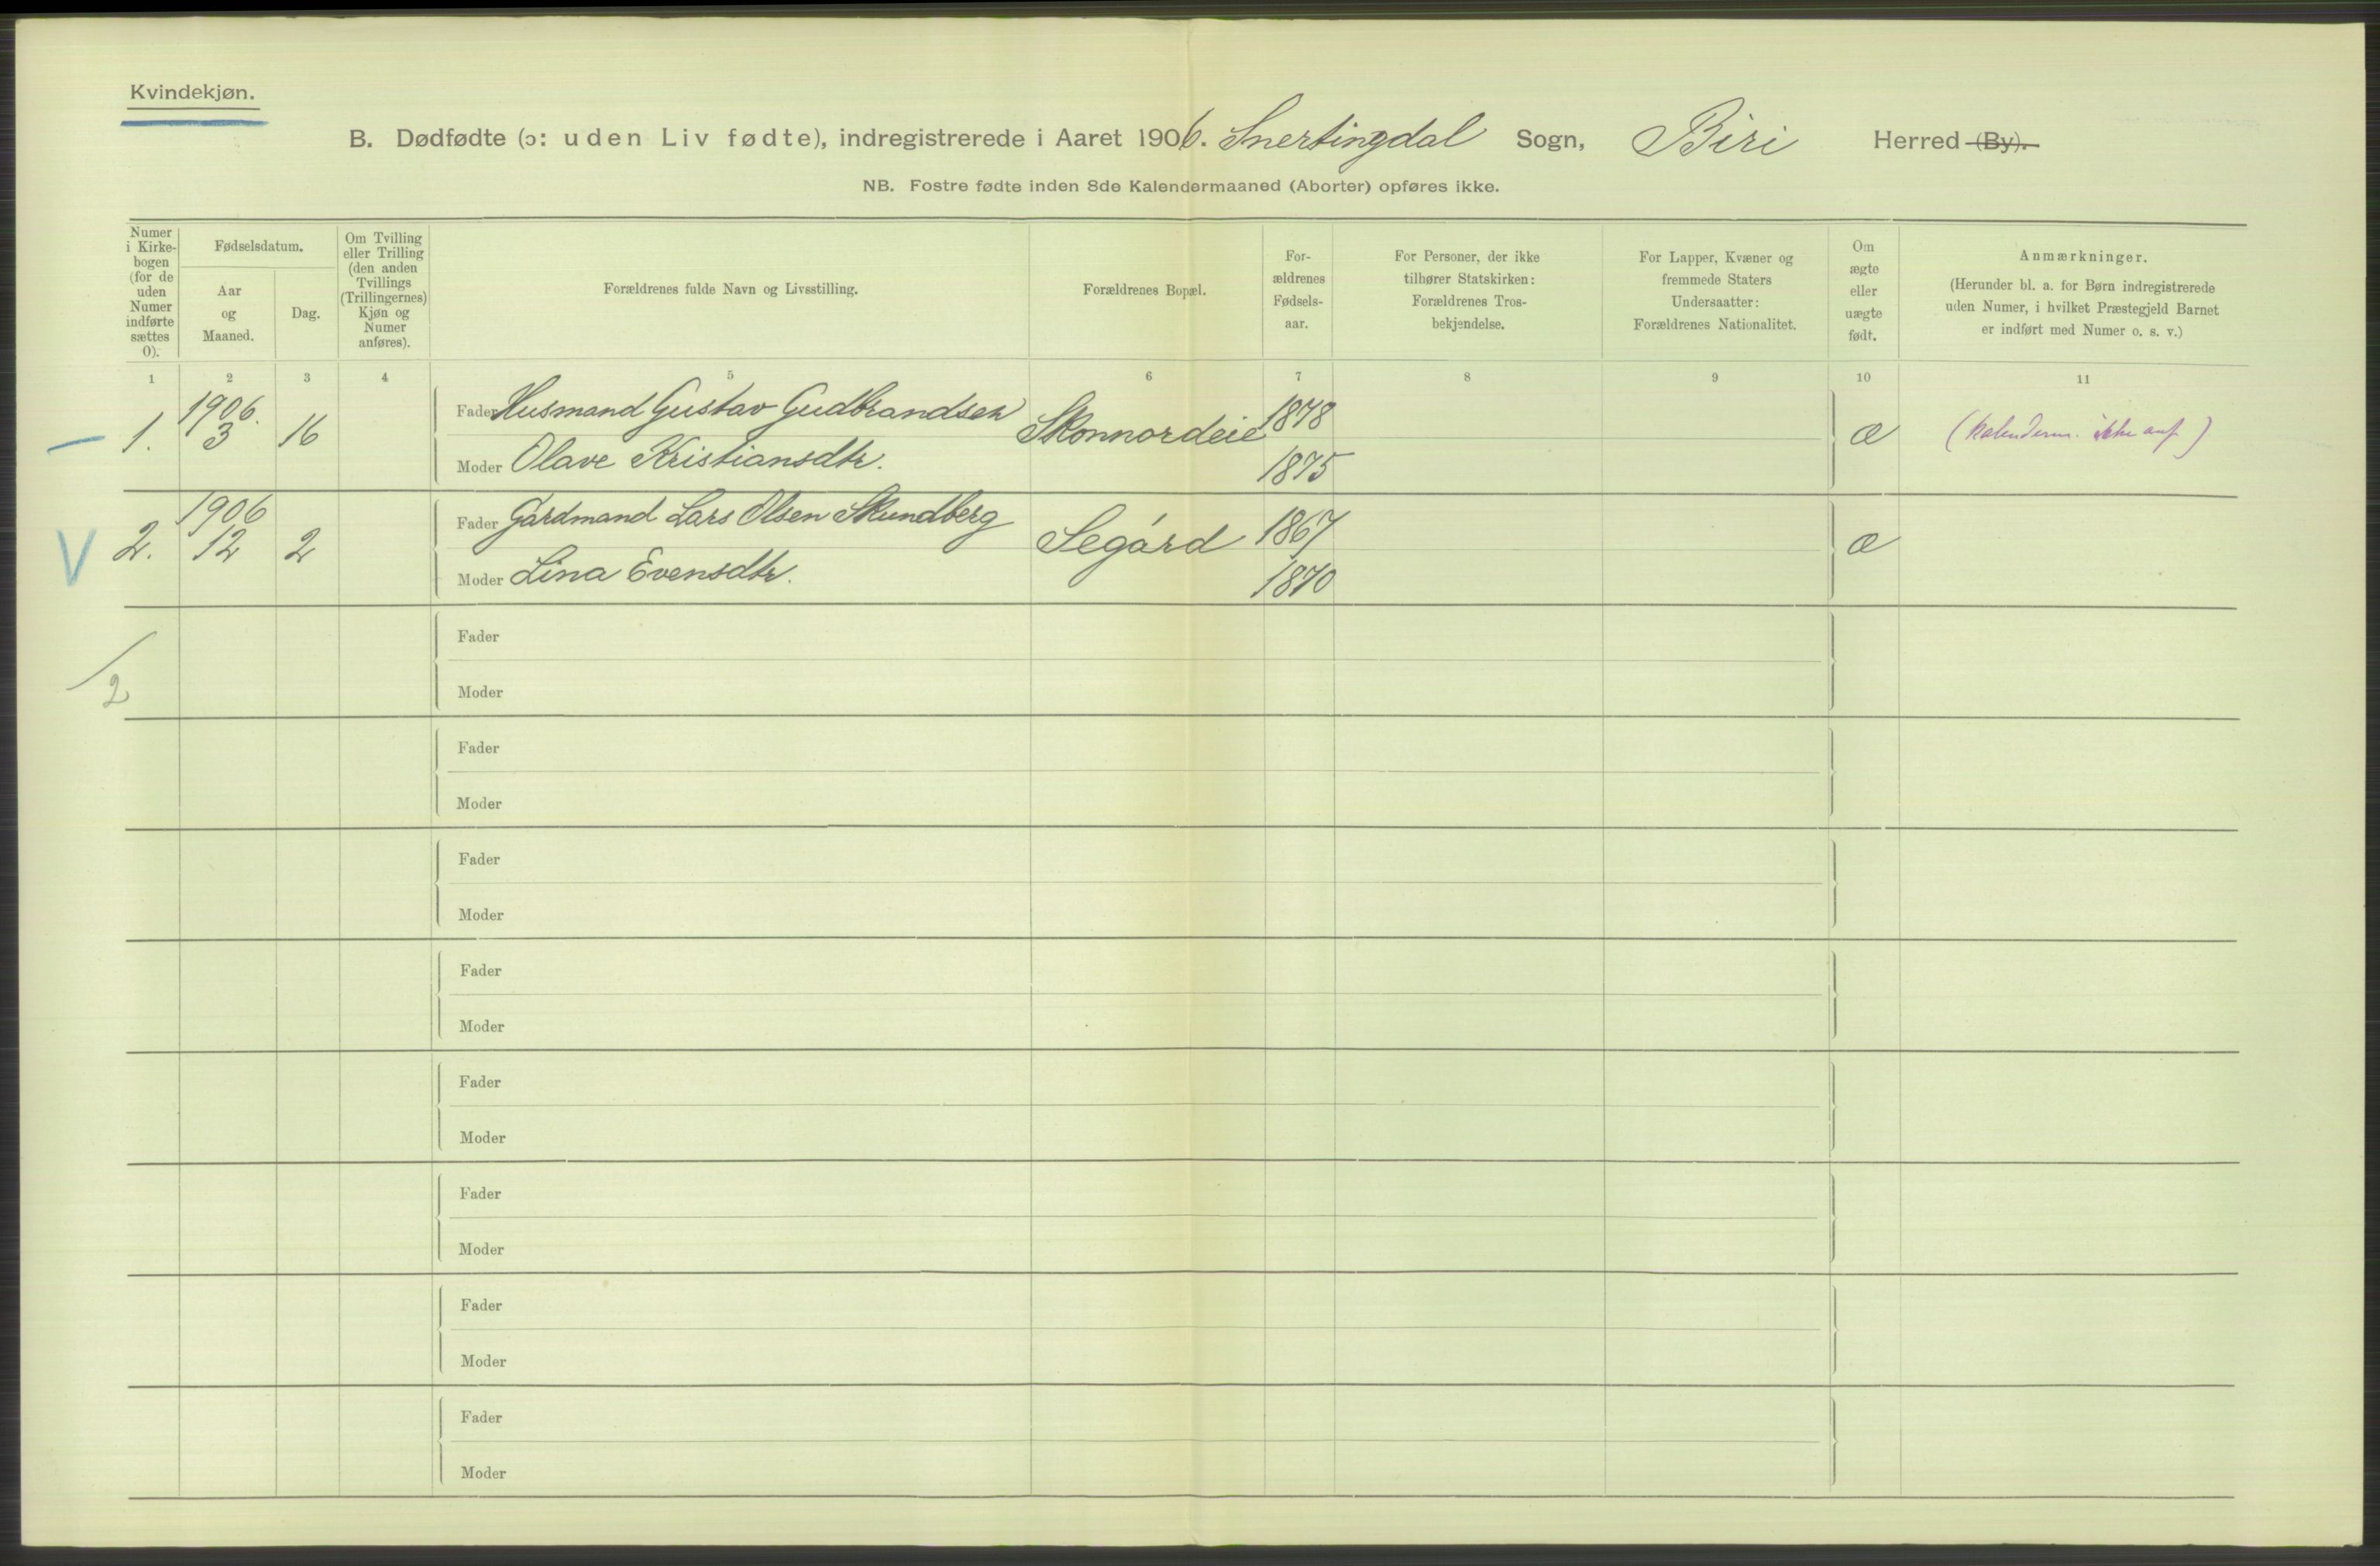 Kvindekjøn.
B. Dødfødte (ɔ: uden Liv fødte), indregistrerede i Aaret 1906. Snertingdal Sogn, Biri Herred (By).
NB. Fostre fødte inden 8de Kalendermaaned (Aborter) opføres ikke.
Numer
i Kirke-
bogen
(for de
uden
Numer
indførte
sættes
0).
Fødselsdatum.
Aar
og
Maaned.
Dag.
Om Tvilling
eller Trilling
(den anden
Tvillings
(Trillingernes)
Kjøn og
Numer
anføres).
Forældrenes fulde Navn og Livsstilling.
Forældrenes Bopæl.
For-
ældrenes
Fødsels-
aar.
For Personer, der ikke
tilhører Statskirken:
Forældrenes Tros-
bekjendelse.
For Lapper, Kvæner og
fremmede Staters
Undersaatter:
Forældrenes Nationalitet.
Om
ægte
eller
uægte
født.
Anmærkninger.
(Herunder bl. a. for Børn indregistrerede
uden Numer, i hvilket Præstegjeld Barnet
er indført med Numer o. s. v.)
1 2 3 4 5 6 7 8 9 10 11
1. 1906. 3 16
Fader Husmand Gustav Gudbrandsen
Moder Olave Kristiansdtr.
Skonnordeie
1878
1875
æ
(Kalenderm. ikke anf.)
V 2. 1906 12 2
Fader Gårdmand Lars Olsen Skundberg
Moder Lina Evensdtr.
Segård
1867
1870
æ
2
Fader
Moder
Fader
Moder
Fader
Moder
Fader
Moder
Fader
Moder
Fader
Moder
Fader
Moder
Fader
Moder